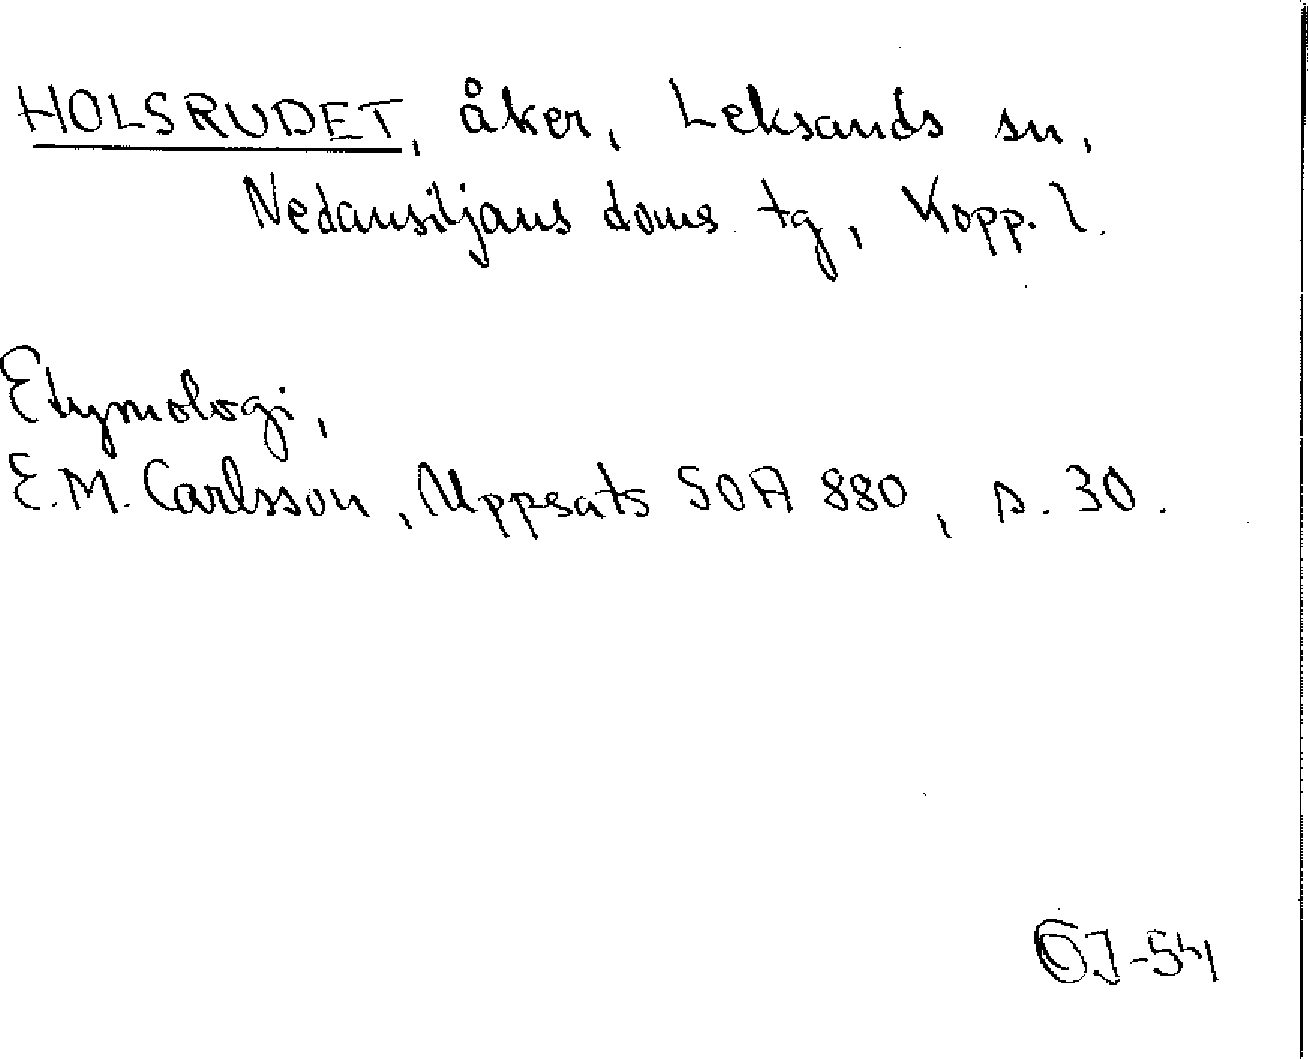 HOLSRUDET, åker, Leksands sn,
Nedansiljans doms. tg, Kopp. l.
Etymologi,
E.M. Carlsson, Uppsats SOA 880, s. 30.
-54